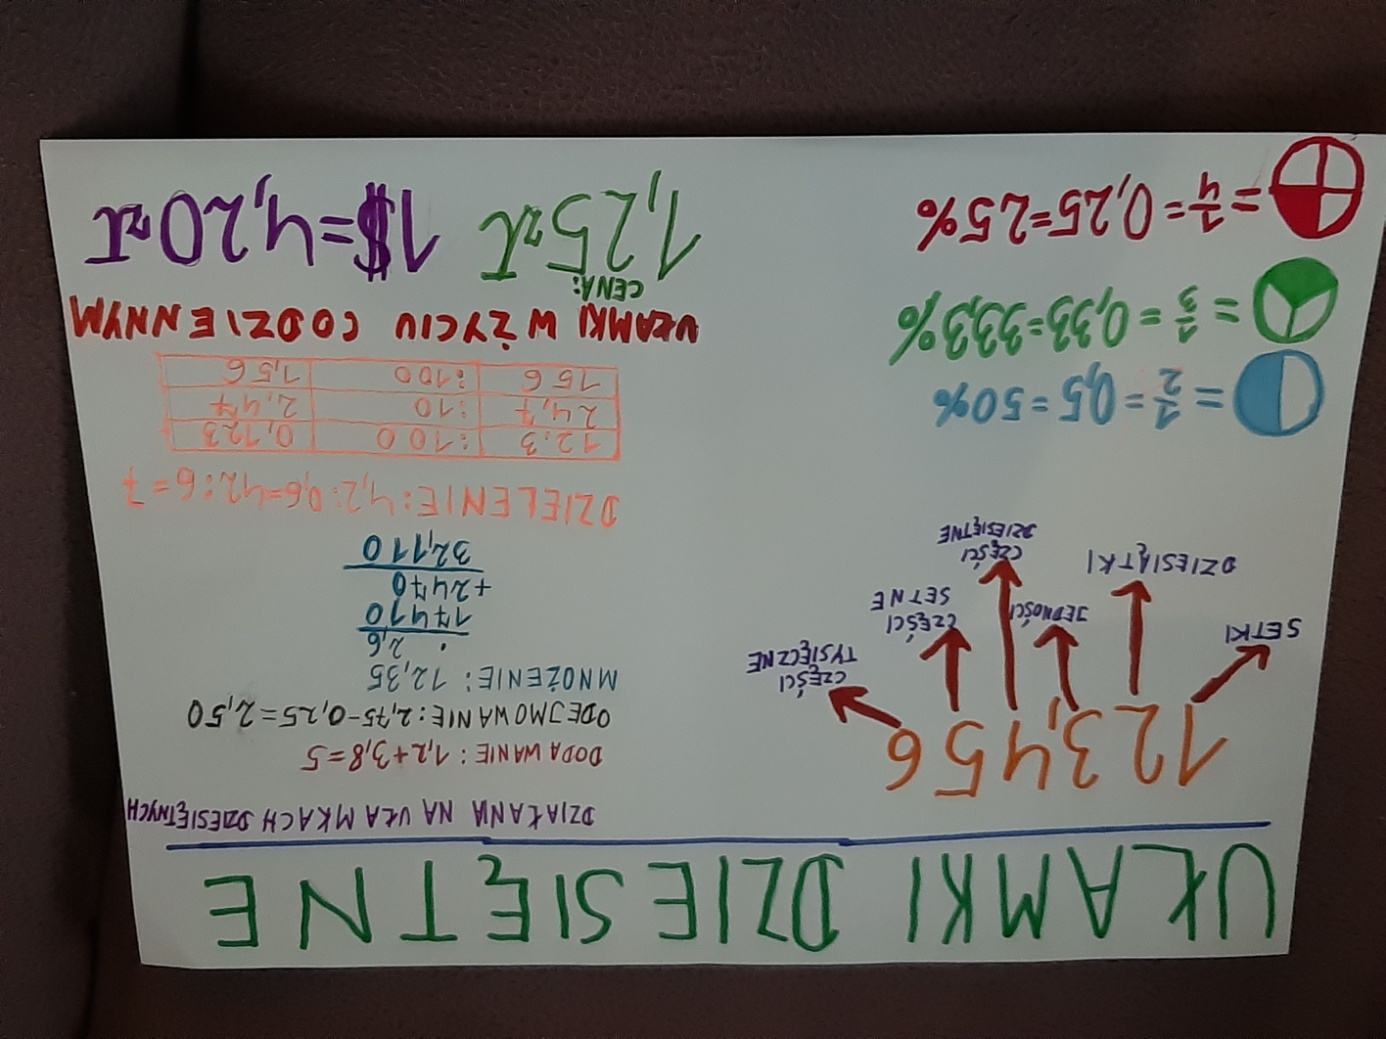 UŁAMKI DZIESIĘTNE
123,456
SETKI
DZIESIĄTKI
JEDNOŚCI
CZĘŚCI
DZIESIĘTNE
CZĘŚCI
SETNE
CZĘŚCI
TYSIĘCZNE
= 1/2 = 0,5 = 50%
= 1/3 = 0,33 = 33,3%
= 1/4 = 0,25 = 25%
DZIAŁANIA NA UŁAMKACH DZIESIĘTNYCH
DODAWANIE: 1,2+3,8=5
ODEJMOWANIE: 2,75-0,25=2,50
MNOŻENIE: 12,35
· 2,6
17410
+2470
32,110
DZIELENIE: 4,2:0,6=42:6=7
12,3 :100 0,123
24,7 :10 2,47
156 :100 1,56
UŁAMKI W ŻYCIU CODZIENNYM
CENA:
1,25zł 1$=4,20zł